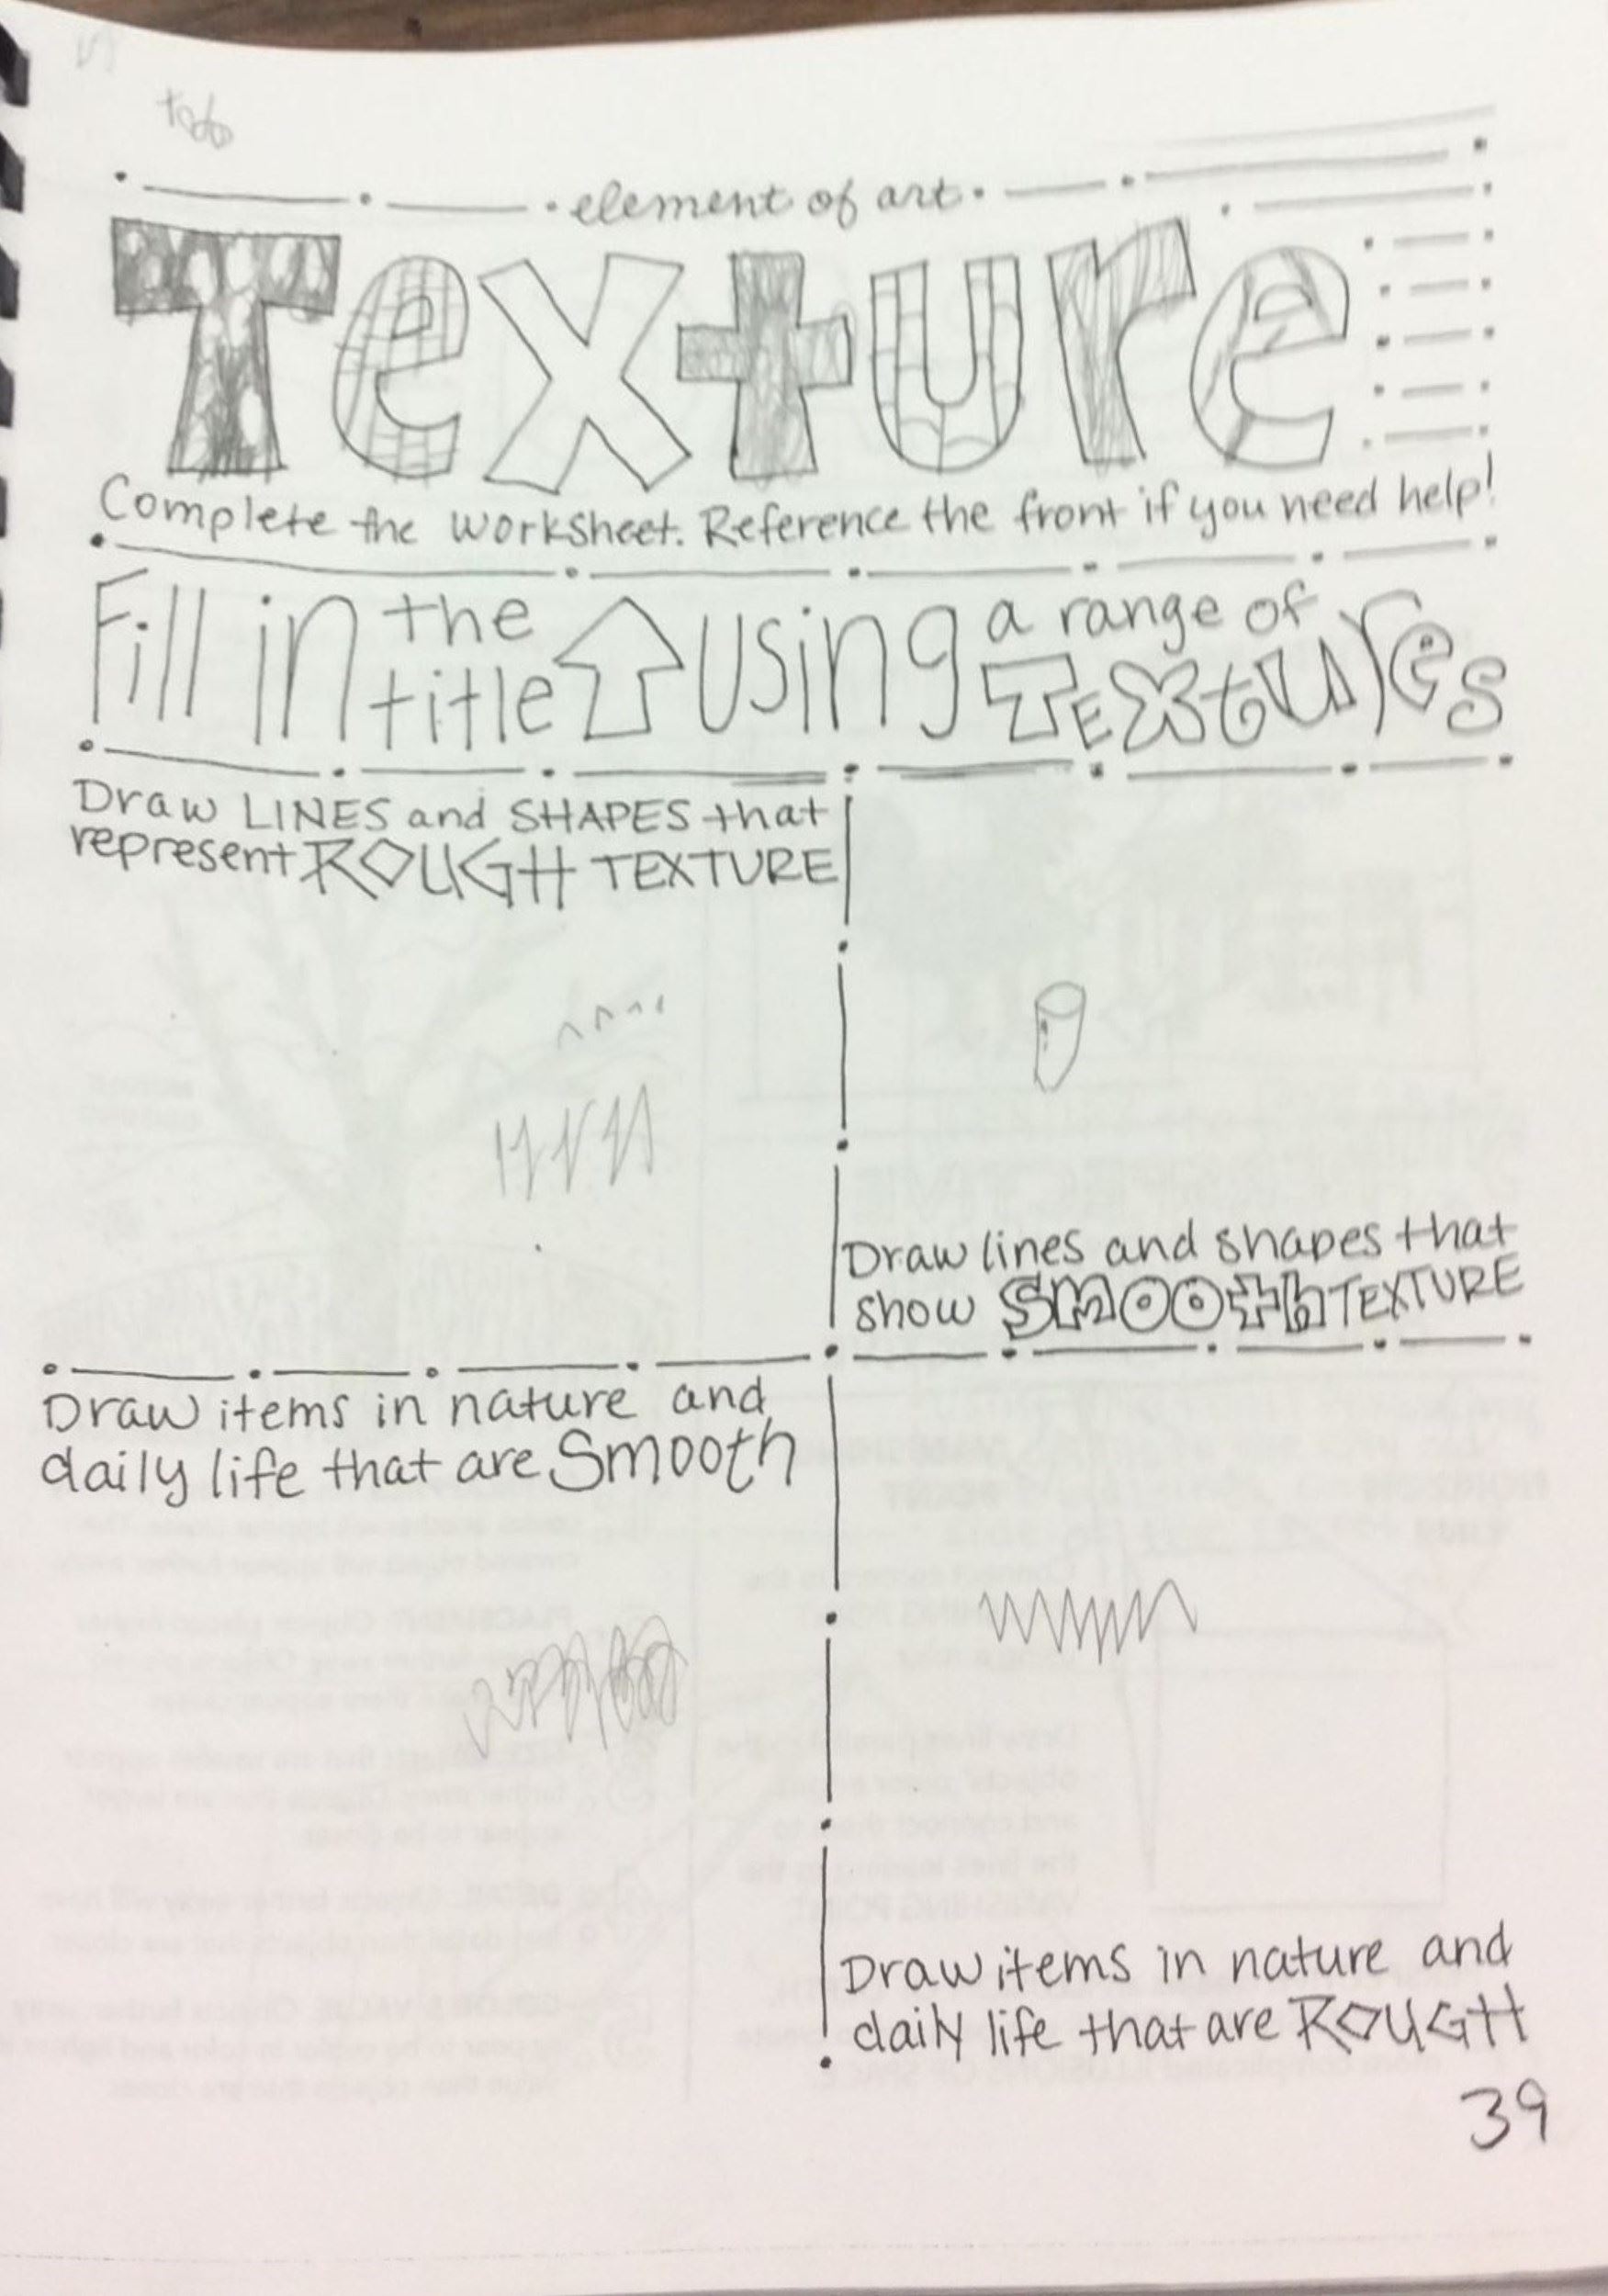 element of art
Texture
Complete the worksheet. Reference the front if you need help!
Fill in the title using a range of TEXTURES
Draw LINES and SHAPES that
represent ROUGH TEXTURE
Draw lines and shapes that
show SMOOth TEXTURE
Draw items in nature and
daily life that are Smooth
Draw items in nature and
daily life that are ROUGH
39